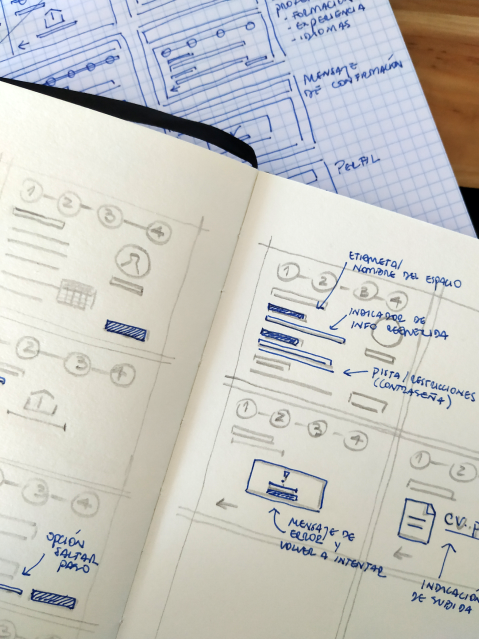 · FORMACIÓN
· EXPERIENCIA
· IDIOMAS
MENSAJE
DE CONFIRMACIÓN
PERFIL
1 2 3 4
2 3 4
3 4
OPCIÓN
SALTAR
PASO
ETIQUETA/
NOMBRE DEL ESPACIO
1 2 3 4
INDICADOR DE
INFO REQUERIDA
PISTA/RESTRICCIONES
(CONTRASEÑA)
1 2 3 4
!
MENSAJE DE
ERROR Y
VOLVER A INTENTAR
1 2
CV.P
INDICACIÓN
DE SUBIDA